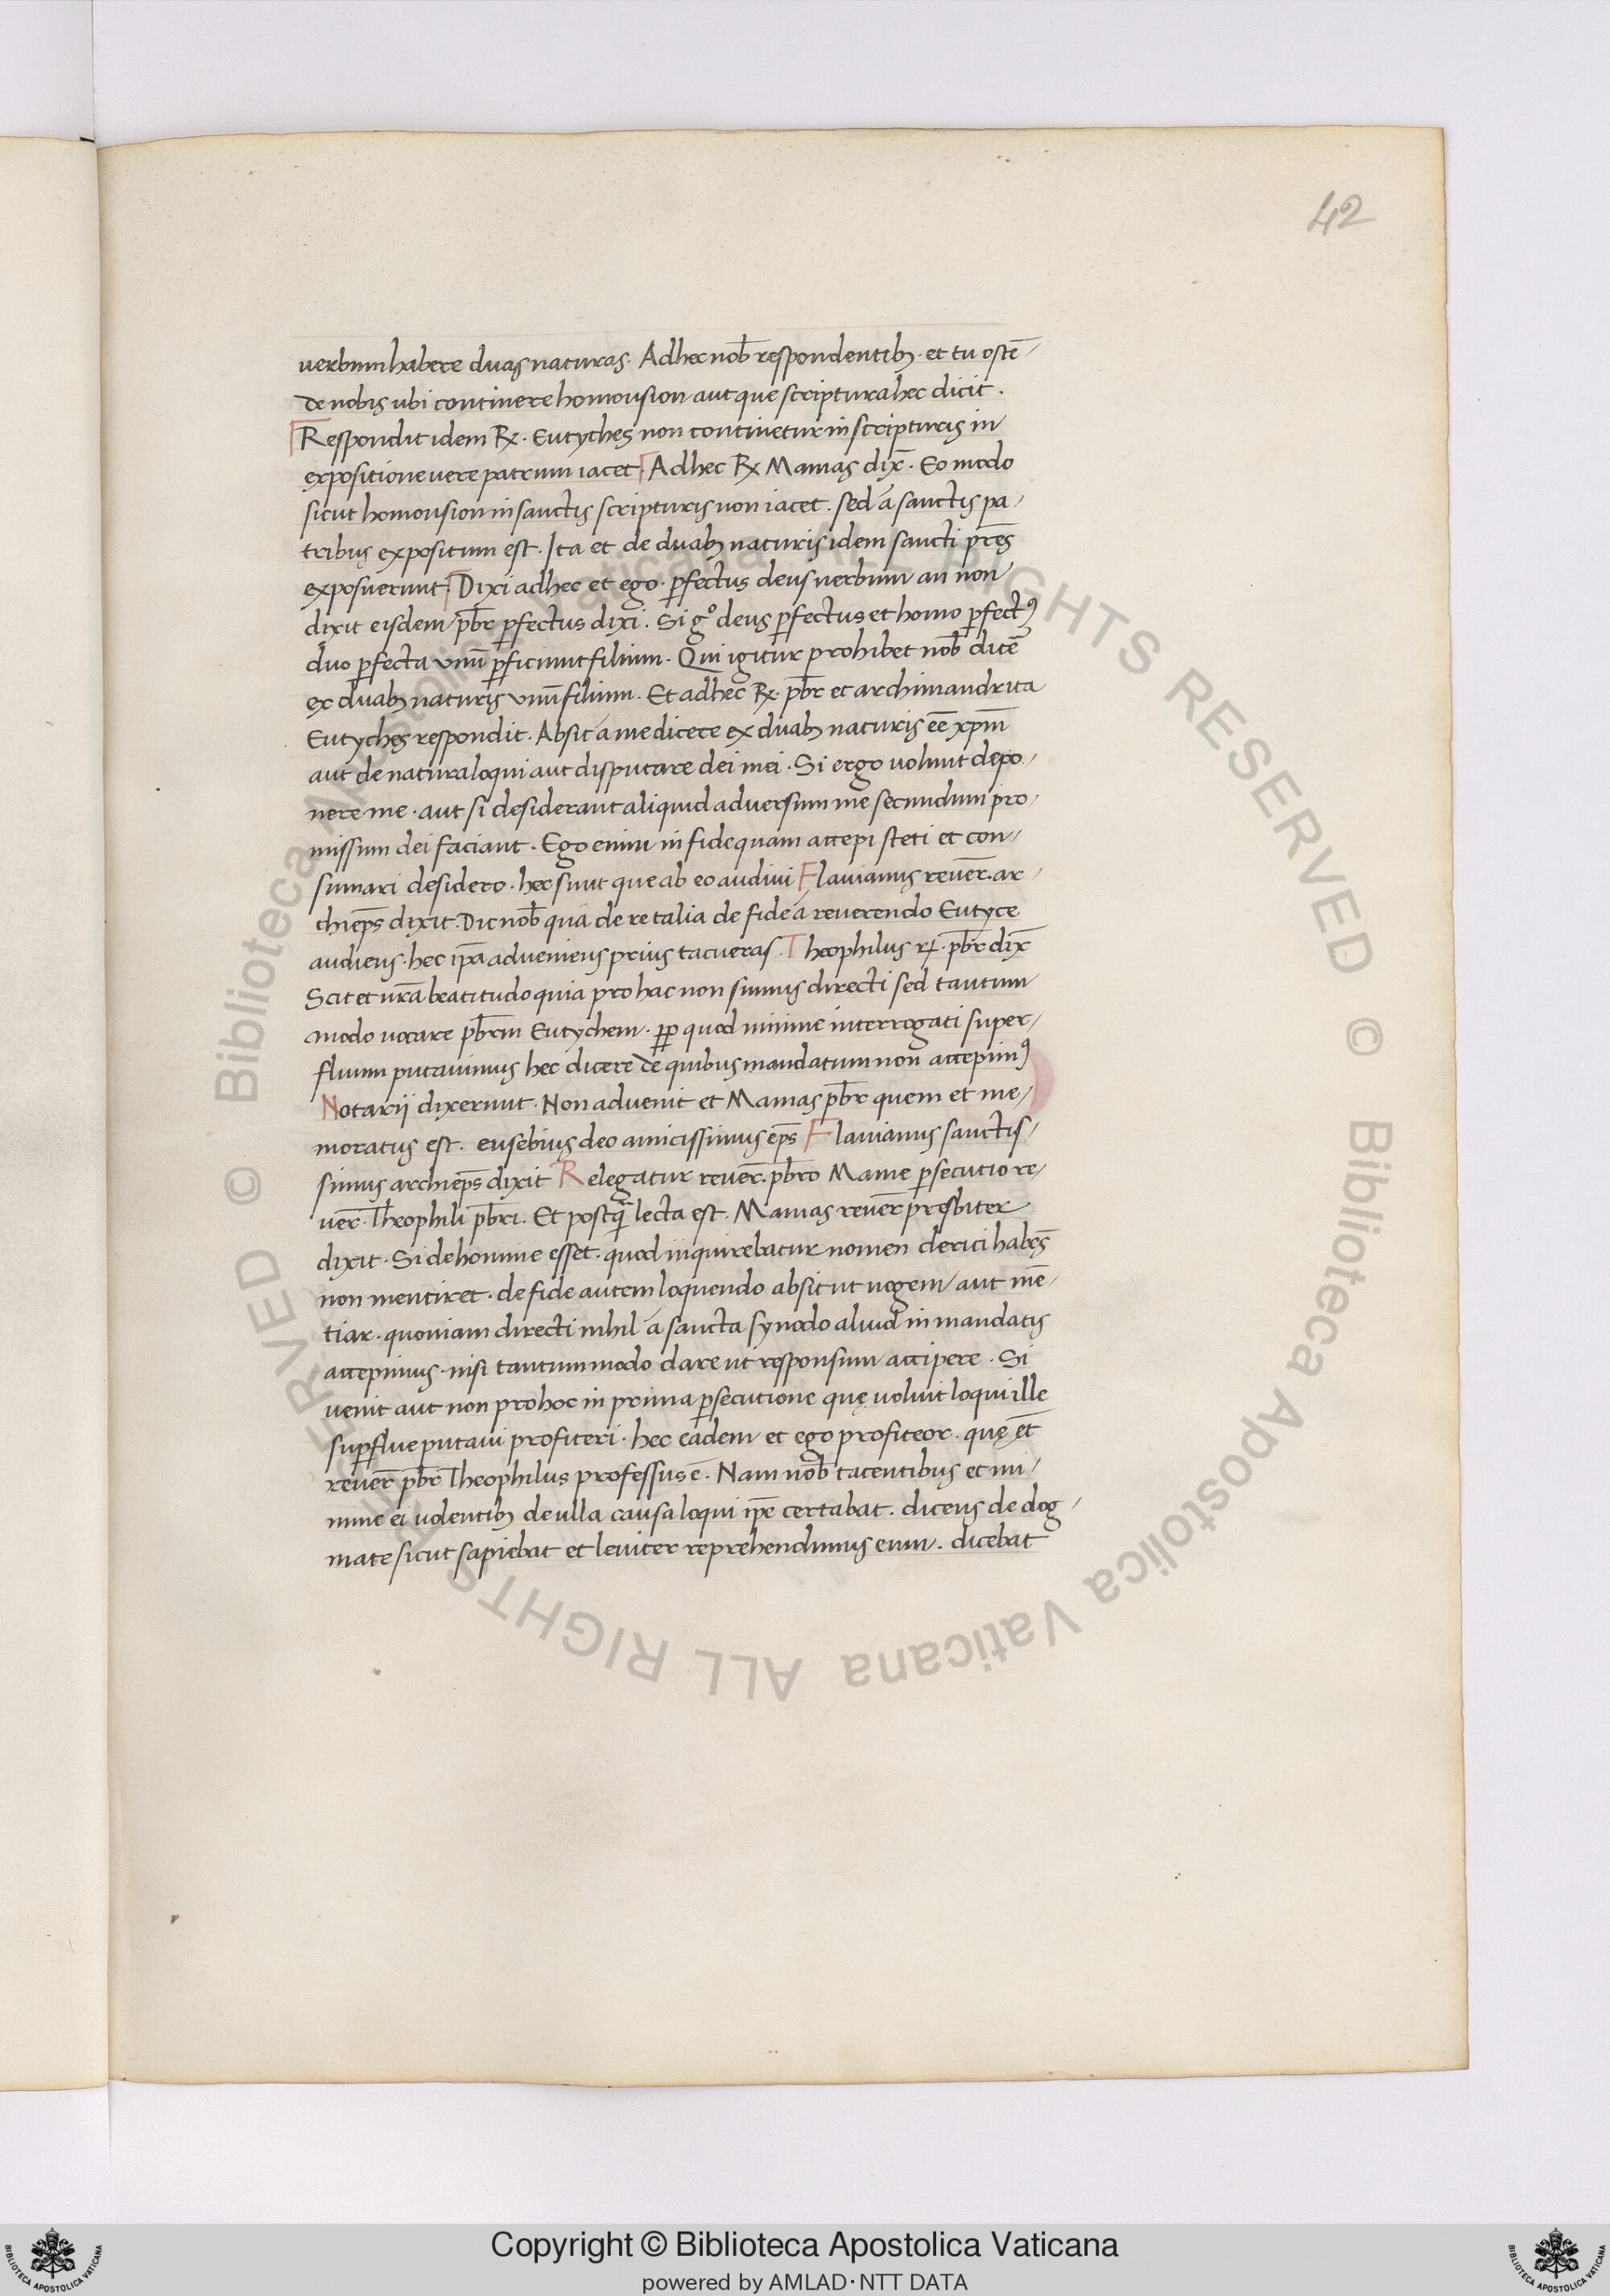 42
uerbum habere duas naturas. Adhec nob̄ respondentibꝫ. et tu ostē/
de nobis ubi continere homousion aut que scriptura hec dicit.
Respondit idem R̶. Eutyches non continetur in scripturis in
expositione uere patrum iacet. Adhec R̶ Mamas dix̄. Eo modo
sicut homousion in sanctis scripturis non iacet. sed á sanctis pa/
tribus expositum est. Ita et de duabꝫ naturis idem sancti pr̄es
exposuerunt. Dixi adhec et ego. ꝑfectus deus uerbum an non
dixit eisdem pb̄r ꝑfectus dixi. Si gͦ deus ꝑfectus et homo ꝑfectꝰ
duo ꝑfecta unū ꝑficiunt filium. Qui igitur prohibet nob̄ dicē
ex duabꝫ naturis unū filium. Et adhec R̶. pb̄r et archimandrita
Eutyches respondit. Absit á me dicere ex duabꝫ naturis ēē xp̄m
aut de natura loqui aut disputare dei mei. Si ergo uolunt depo/
nere me. aut si desiderant aliquid aduersum me secundum pro/
missum dei faciant. Ego enim in fide quam accepi steti et con/
sumari desidero. hec sunt que ab eo audiui Flauianus reuer̄. ar/
chiep̄s dixit. Dic nob̄ qua de re talia de fide á reuerendo Eutyce
audiens. hec ip̄a adueniens prius tacueras. Theophilus r̶. pb̄r dix̄
Scit et ur̄a beatitudo quia pro hac non sumus directi sed tantum
modo uocare pb̄rm Eutychem. ꝓp quod minime interrogati super/
fluum putauimus hec dicere de quibus mandatum non accepimꝰ
Notarij dixerunt. Non aduenit et Mamas pb̄r quem et me/
moratus est. eusebius deo amicissimus ep̄s Flauianus sanctis/
simus archiep̄s dixit Relegatur reuer̄. pb̄ro Mame ꝑsecutio re/
uer̄. Theophili pb̄ri. Et postq̄ lecta est. Mamas reuer̄ presbiter
dixit. Si de homine esset. quod inquirebatur nomen clerici habēs
non mentiret. de fide autem loquendo absit ut negem aut mē/
tiar. quoniam directi nihil á sancta synodo aliud in mandatis
accepimus. nisi tantummodo dare ut responsum accipere. Si
uenit aut non pro hoc in prima ꝑsecutione quę uoluit loqui ille
suꝑflue putaui profiteri. hec eadem et ego profiteor. quę et
reuer̄ pb̄r Theophilus professus ē. Nam nob̄ tacentibus et mi/
nime ei uolentibꝫ de ulla causa loqui ip̄e certabat. dicens de dog/
mate sicut sapiebat et leuiter reprehendimus eum. dicebat
© Biblioteca Apostolica Vaticana ALL RIGHTS RESERVED © Biblioteca Apostolica Vaticana ALL RIGHTS RESERVED
Copyright © Biblioteca Apostolica Vaticana
powered by AMLAD·NTT DATA
BIBLIOTECA APOSTOLICA VATICANA
BIBLIOTECA APOSTOLICA VATICANA